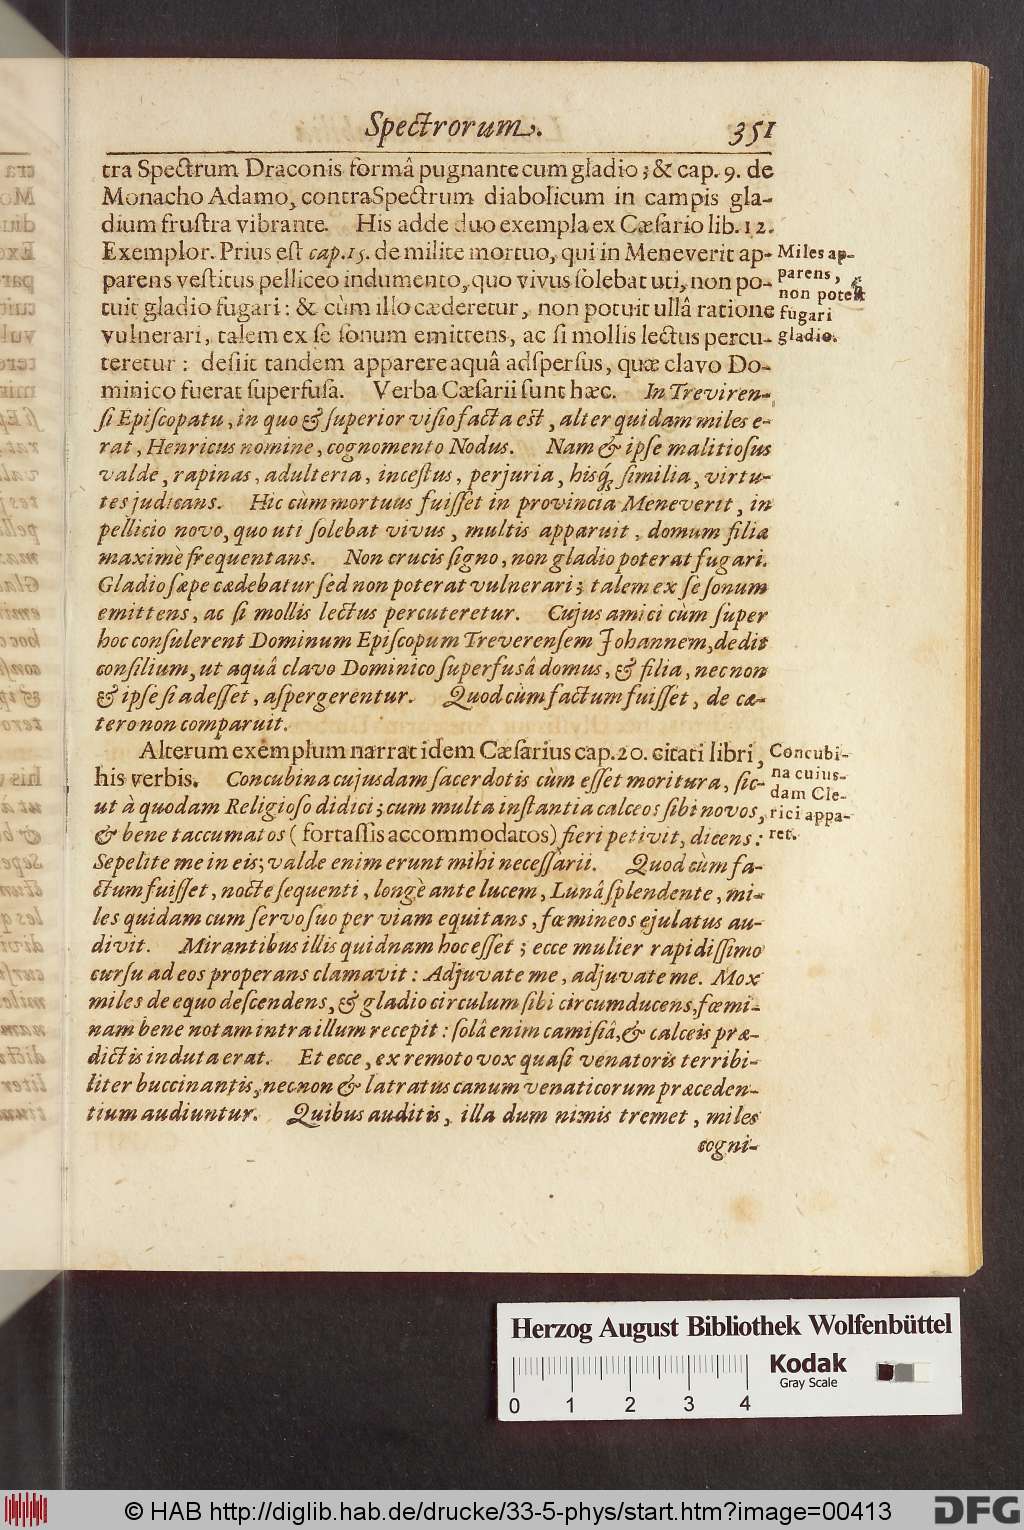 Spectrorum. 351
tra Spectrum Draconis formâ pugnante cum gladio; & cap. 9. de
Monacho Adamo, contra Spectrum diabolicum in campis gla-
dium frustra vibrante. His adde duo exempla ex Cæsario lib. 12.
Exemplor. Prius est cap. 15. de milite mortuo, qui in Meneverit ap-
parens vestitus pelliceo indumento, quo vivus solebat uti, non po-
tuit gladio fugari: & cùm illo cæderetur, non potuit ullâ ratione
vulnerari, talem ex se sonum emittens, ac si mollis lectus percu-
teretur: desiit tandem apparere aquâ adspersus, quæ clavo Do-
minico fuerat superfusa. Verba Cæsarii sunt hæc. In Treviren-
si Episcopatu, in quo & superior visio facta est, alter quidam miles e-
rat, Henricus nomine, cognomento Nodus. Nam & ipse malitiosus
valde, rapinas, adulteria, incestus, perjuria, hisq́; similia, virtu-
tes judicans. Hic cùm mortuus fuisset in provincia Meneverit, in
pellicio novo, quo uti solebat vivus, multis apparuit, domum filia
maximè frequentans. Non crucis signo, non gladio poterat fugari.
Gladio sæpe cædebatur sed non poterat vulnerari; talem ex se sonum
emittens, ac si mollis lectus percuteretur. Cujus amici cùm super
hoc consulerent Dominum Episcopum Treverensem Johannem, dedit
consilium, ut aquâ clavo Dominico superfusâ domus, & filia, necnon
& ipse si adesset, aspergerentur. Quod cùm factum fuisset, de cæ-
tero non comparuit.
Alterum exemplum narrat idem Cæsarius cap. 20. citati libri,
his verbis. Concubina cujusdam sacerdotis cùm esset moritura, sic-
ut à quodam Religioso didici; cum multa instantia calceos sibi novos,
& bene taccumatos (fortassis accommodatos) fieri petivit, dicens:
Sepelite me in eis; valde enim erunt mihi necessarii. Quod cùm fa-
ctum fuisset, nocte sequenti, longè ante lucem, Lunâ splendente, mi-
les quidam cum servo suo per viam equitans, fœmineos ejulatus au-
divit. Mirantibus illis quidnam hoc esset; ecce mulier rapidissimo
cursu ad eos properans clamavit: Adjuvate me, adjuvate me. Mox
miles de equo descendens, & gladio circulum sibi circumducens, fœmi-
nam bene notam intra illum recepit: solâ enim camisiâ, & calceis præ-
dictis induta erat. Et ecce, ex remoto vox quasi venatoris terribi-
liter buccinantis, necnon & latratus canum venaticorum præceden-
tium audiuntur. Quibus auditis, illa dum nimis tremet, miles
cogni-
Miles ap-
parens,
non potest
fugari
gladio.
Concubi-
na cuius-
dam Cle-
rici appa-
ret.
Herzog August Bibliothek Wolfenbüttel
Kodak
Gray Scale
0 1 2 3 4
© HAB http://diglib.hab.de/drucke/33-5-phys/start.htm?image=00413
DFG